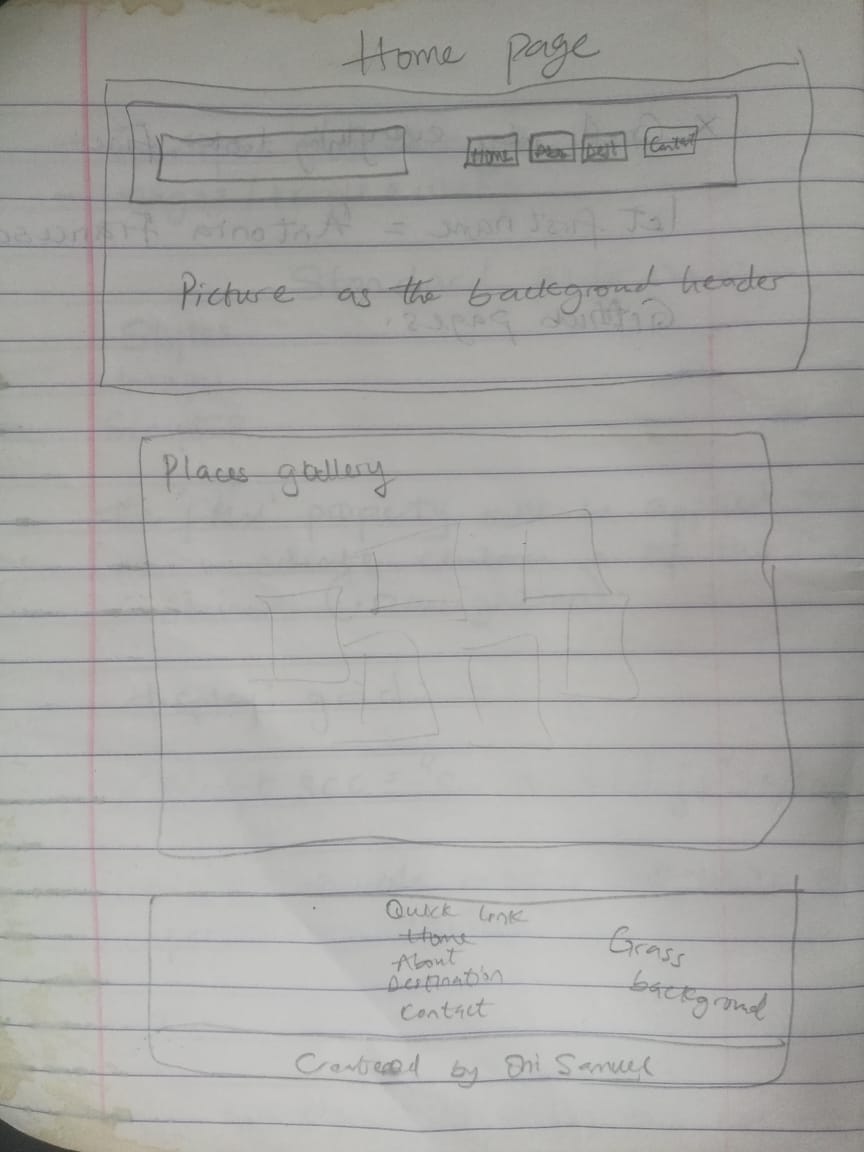 Home page
Home Dest Contact
Picture as the background header
Places gallery
Quick link
Home
About
Destination
Contact
Grass
background
by Oni Samuel